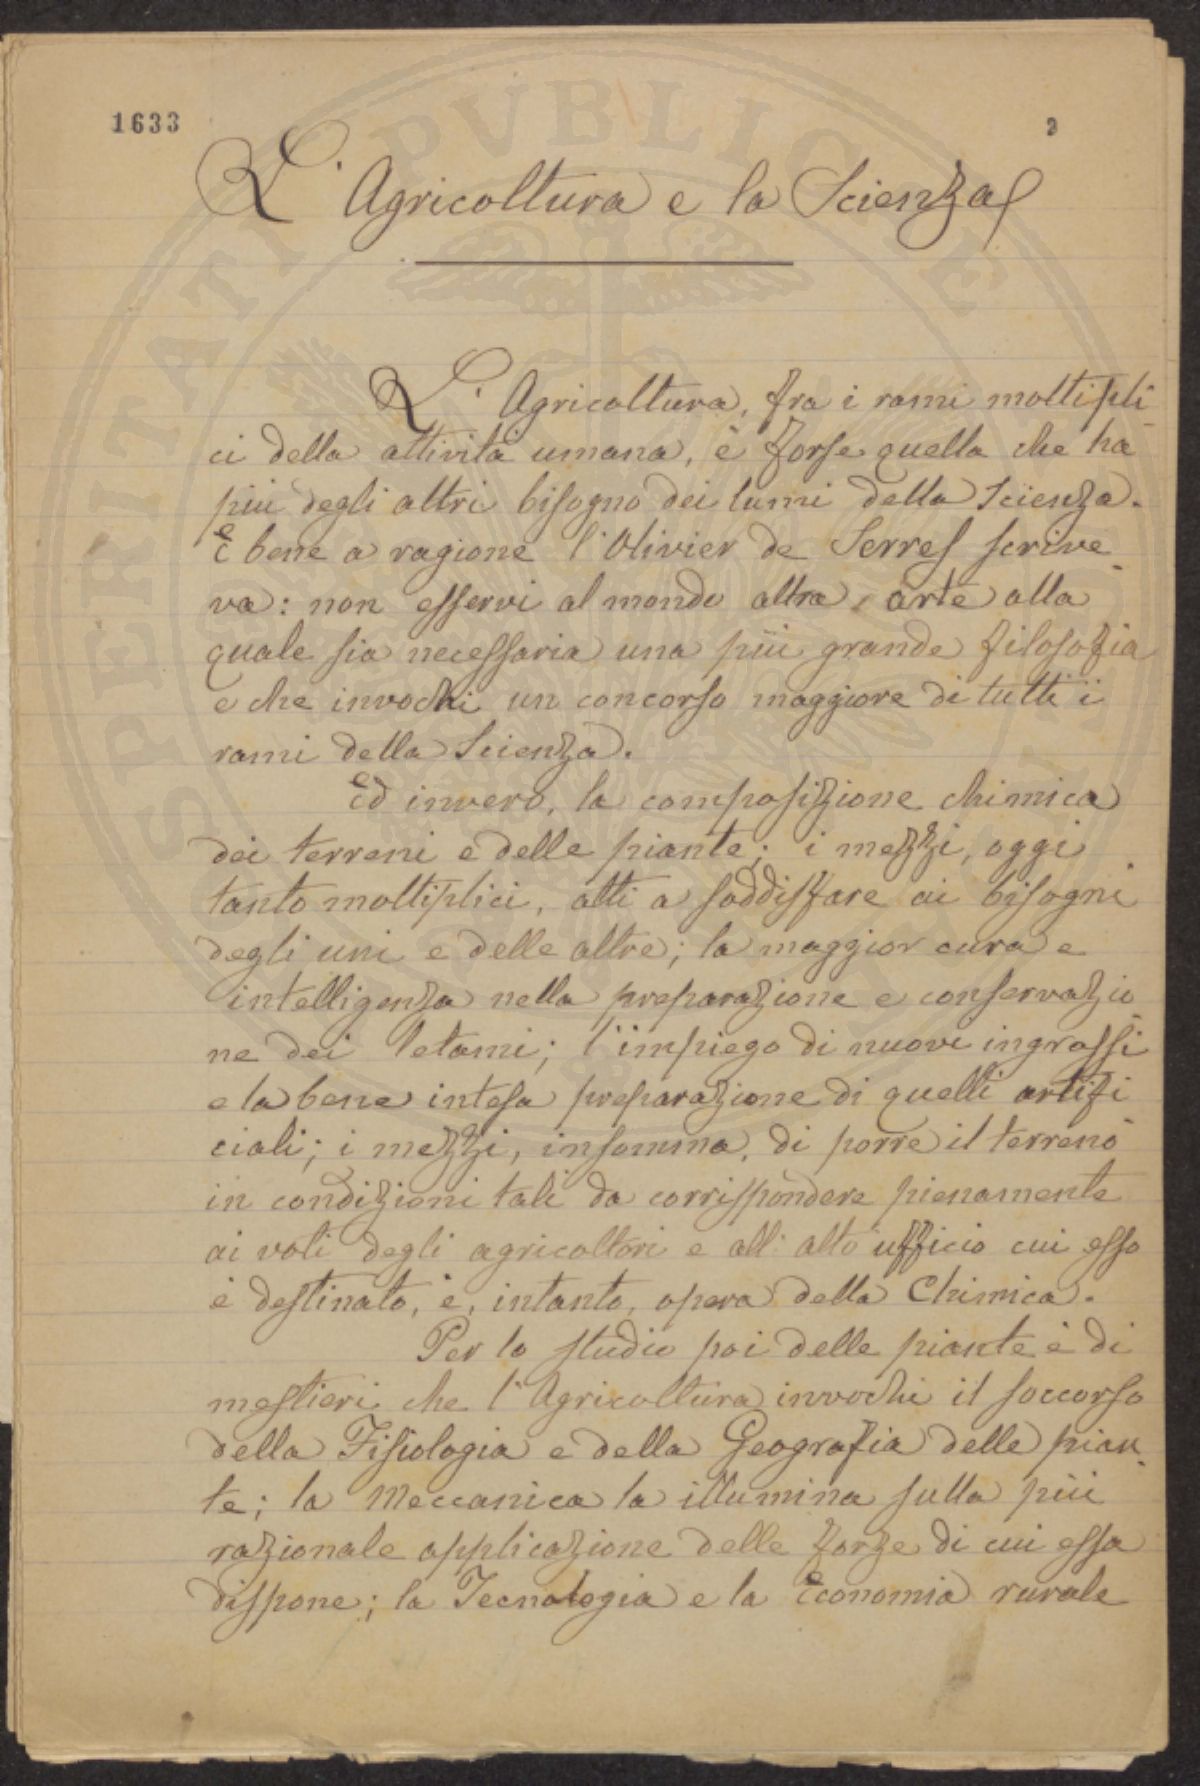 1633
2
L'Agricoltura e la Scienza
L'Agricoltura, fra i rami moltipli-
ci della attività umana, è forse quella che ha
più degli altri bisogno dei lumi della Scienza.
E bene a ragione l'Olivier de Serres scrive-
va: non esservi al mondo altra arte alla
quale sia necessaria una più grande filosofia
e che invochi un concorso maggiore di tutti i
rami della Scienza.
Ed invero, la composizione chimica
dei terreni e delle piante; i mezzi, oggi
tanto moltiplici, atti a soddisfare ai bisogni
degli uni e delle altre; la maggior cura e
intelligenza nella preparazione e conservazio-
ne dei letami; l'impiego di nuovi ingrassi
e la bene intesa preparazione di quelli artifi-
ciali; i mezzi, insomma, di porre il terreno
in condizioni tali da corrispondere pienamente
ai voti degli agricoltori e all'alto ufficio cui esso
è destinato, è, intanto, opera della Chimica.
Per lo studio poi delle piante è di
mestieri che l'Agricoltura invochi il soccorso
della Fisiologia e della Geografia delle pian-
te; la Meccanica la illumina sulla più
razionale applicazione delle forze di cui essa
dispone; la Tecnologia e la Economia rurale
SPERITATI PVBLICE